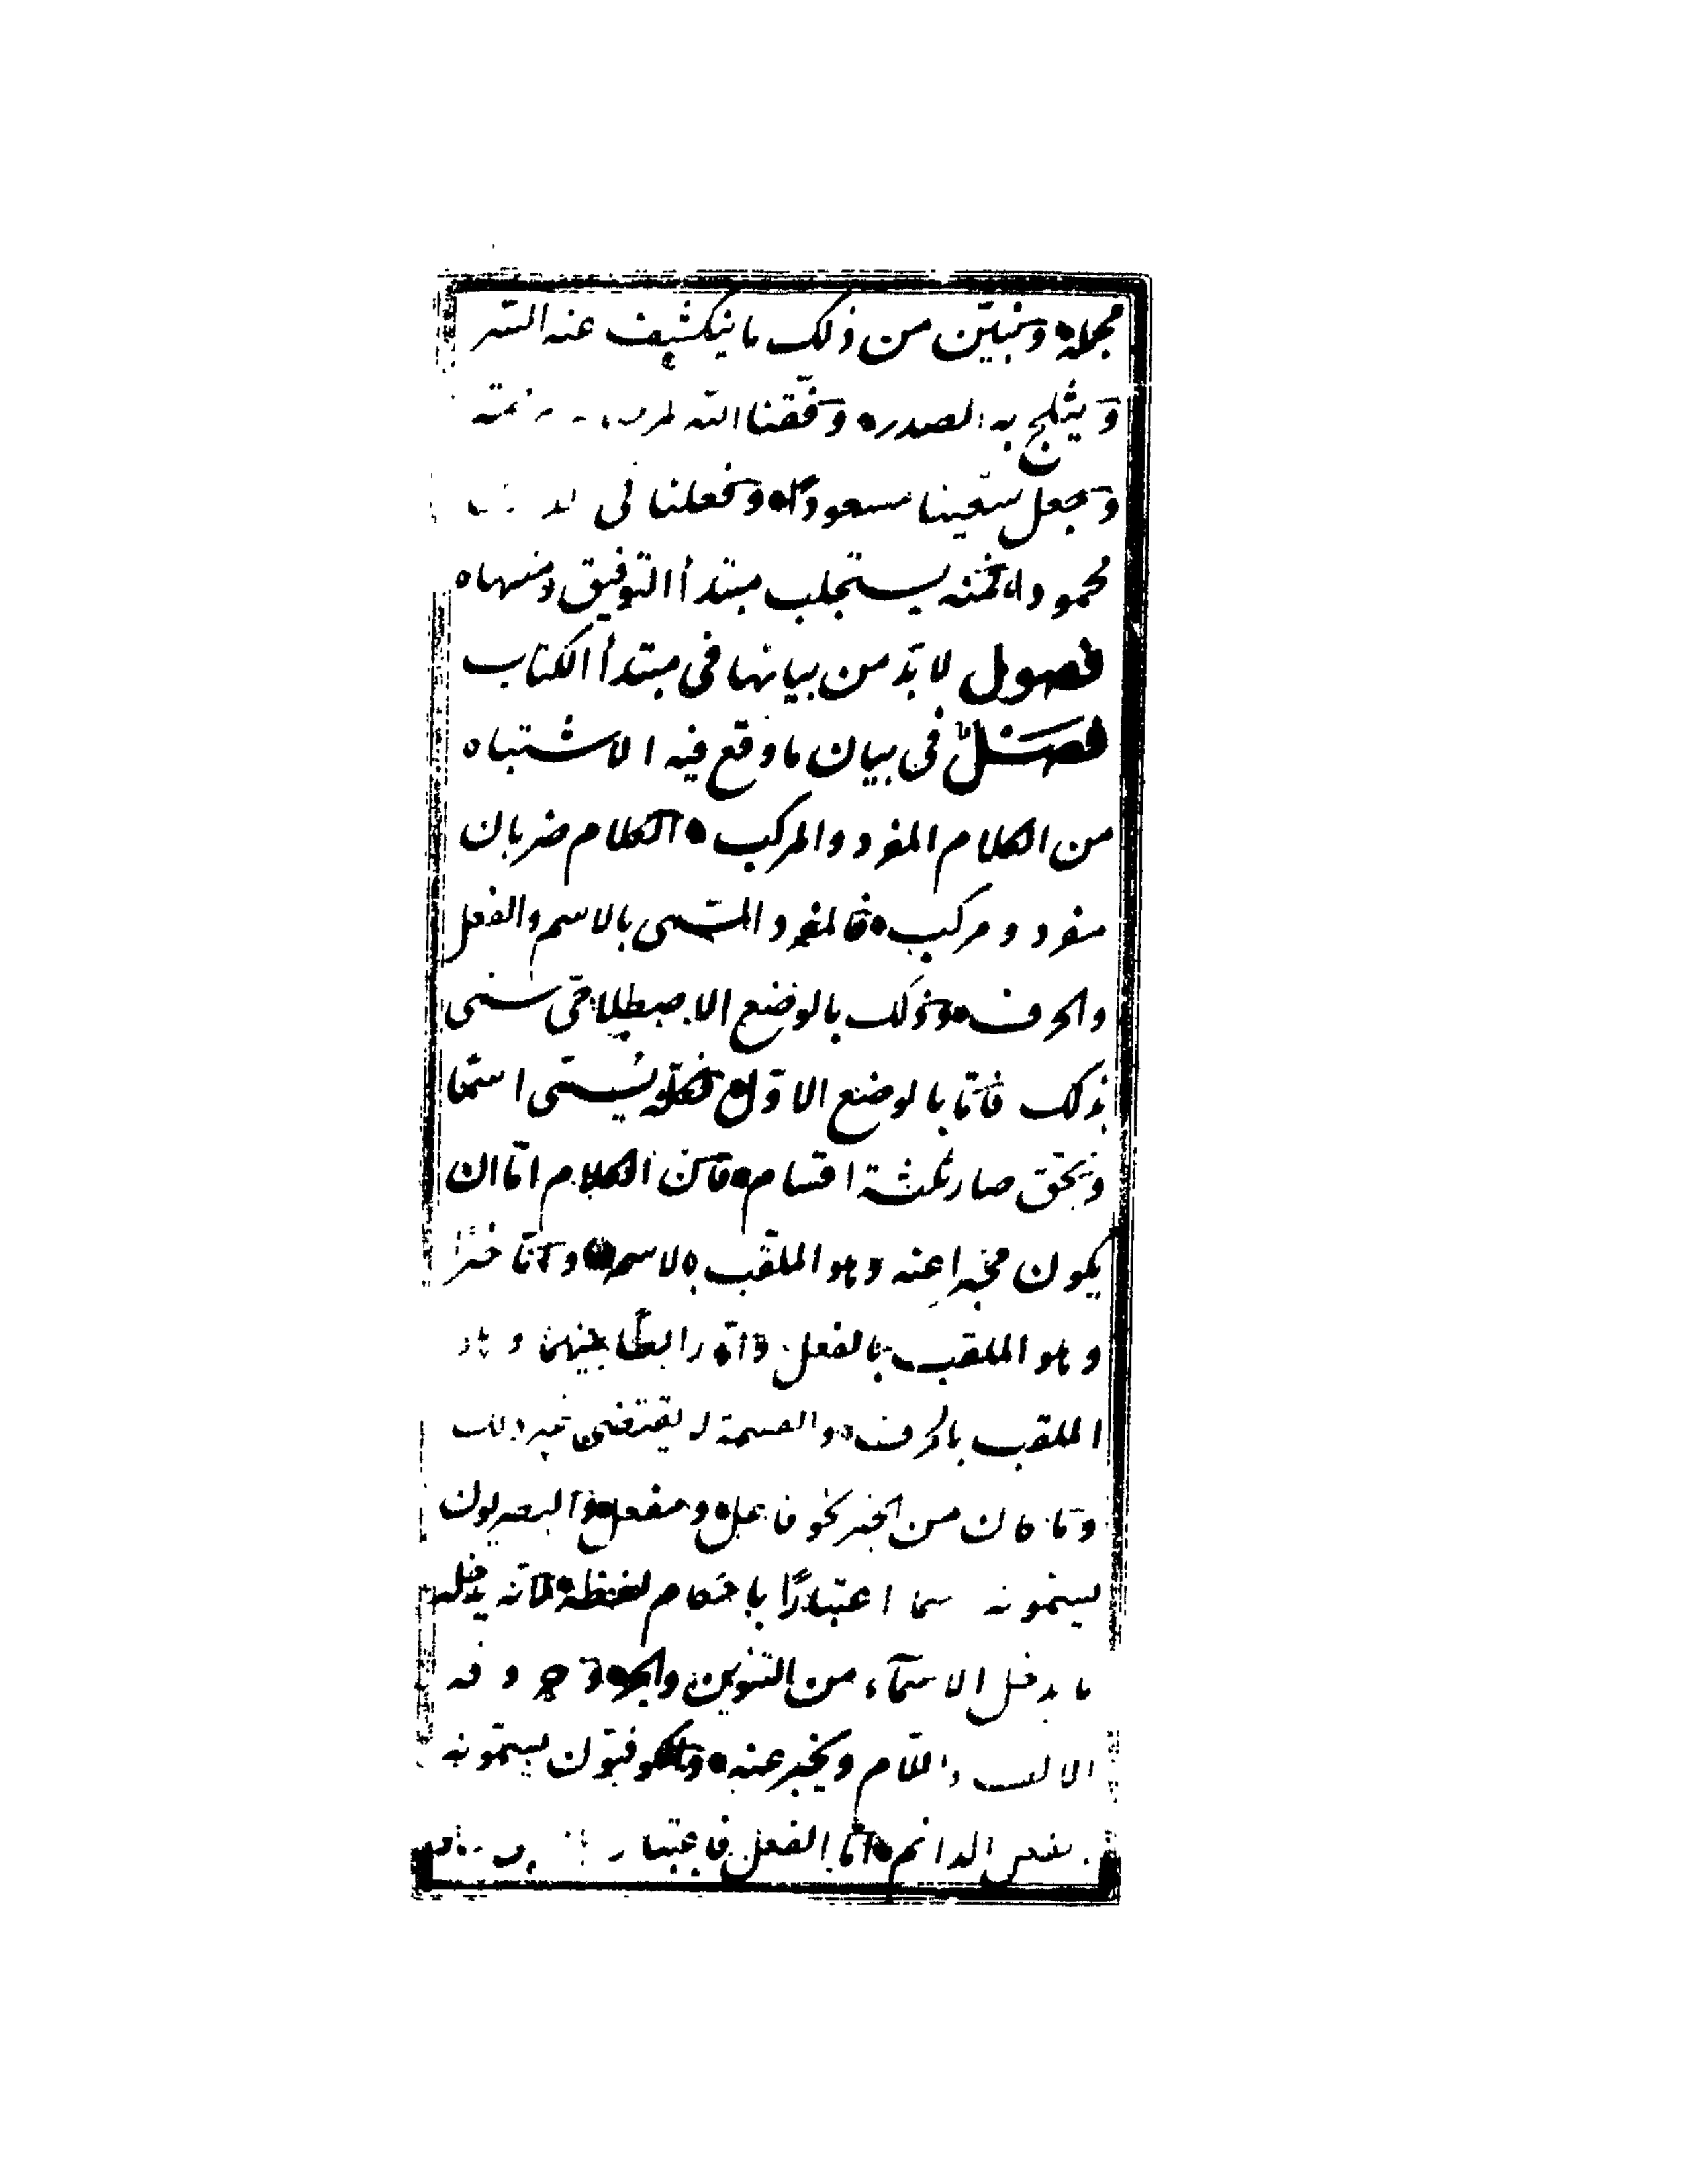 مجمله ونبيّن من ذلك ما ينكشف عنه السّر
ويثلج به الصدره وفّقنا الله
وجعل سعينا مسعودًا وفعلنا في
محمودا فمنه يستجلب مبتدأ التوفيق ومنتهاه
فصول لا بدّ من بيانها في مبتدأ الكتاب
فصلٌ في بيان ما وقع فيه الاشتباه
من الكلام المفرد والمركب الكلام ضربان
مفرد ومركب فالمفرد المسمى بالاسم والفعل
والحرف وذلك بالوضع الاصطلاحى سمى
بذلك فامّا بالوضع الاوّل فكلّه يسمّى اسمًا
وبحق صار ثلثة اقسام فانّ الكلام امّا ان
يكون مخبرا عنه وهو الملقّب بالاسم وامّا خبرًا
وهو الملقب بالفعل وامّا رابطًا بينهما
الملقب بالحرف والقسمة لا يقتضى غير ذلك
وما كان من الخبر نحو فاعل ومفعل فالبصريون
يسمّونه سما اعتبارًا باحكام لفظه لانّه يدخله
ما يدخل الاسمآء من التنوين والجر
الالف واللام ويخبر عنه والكوفيّون يسمّونه
الدائم امّا الفعل فاعتبار